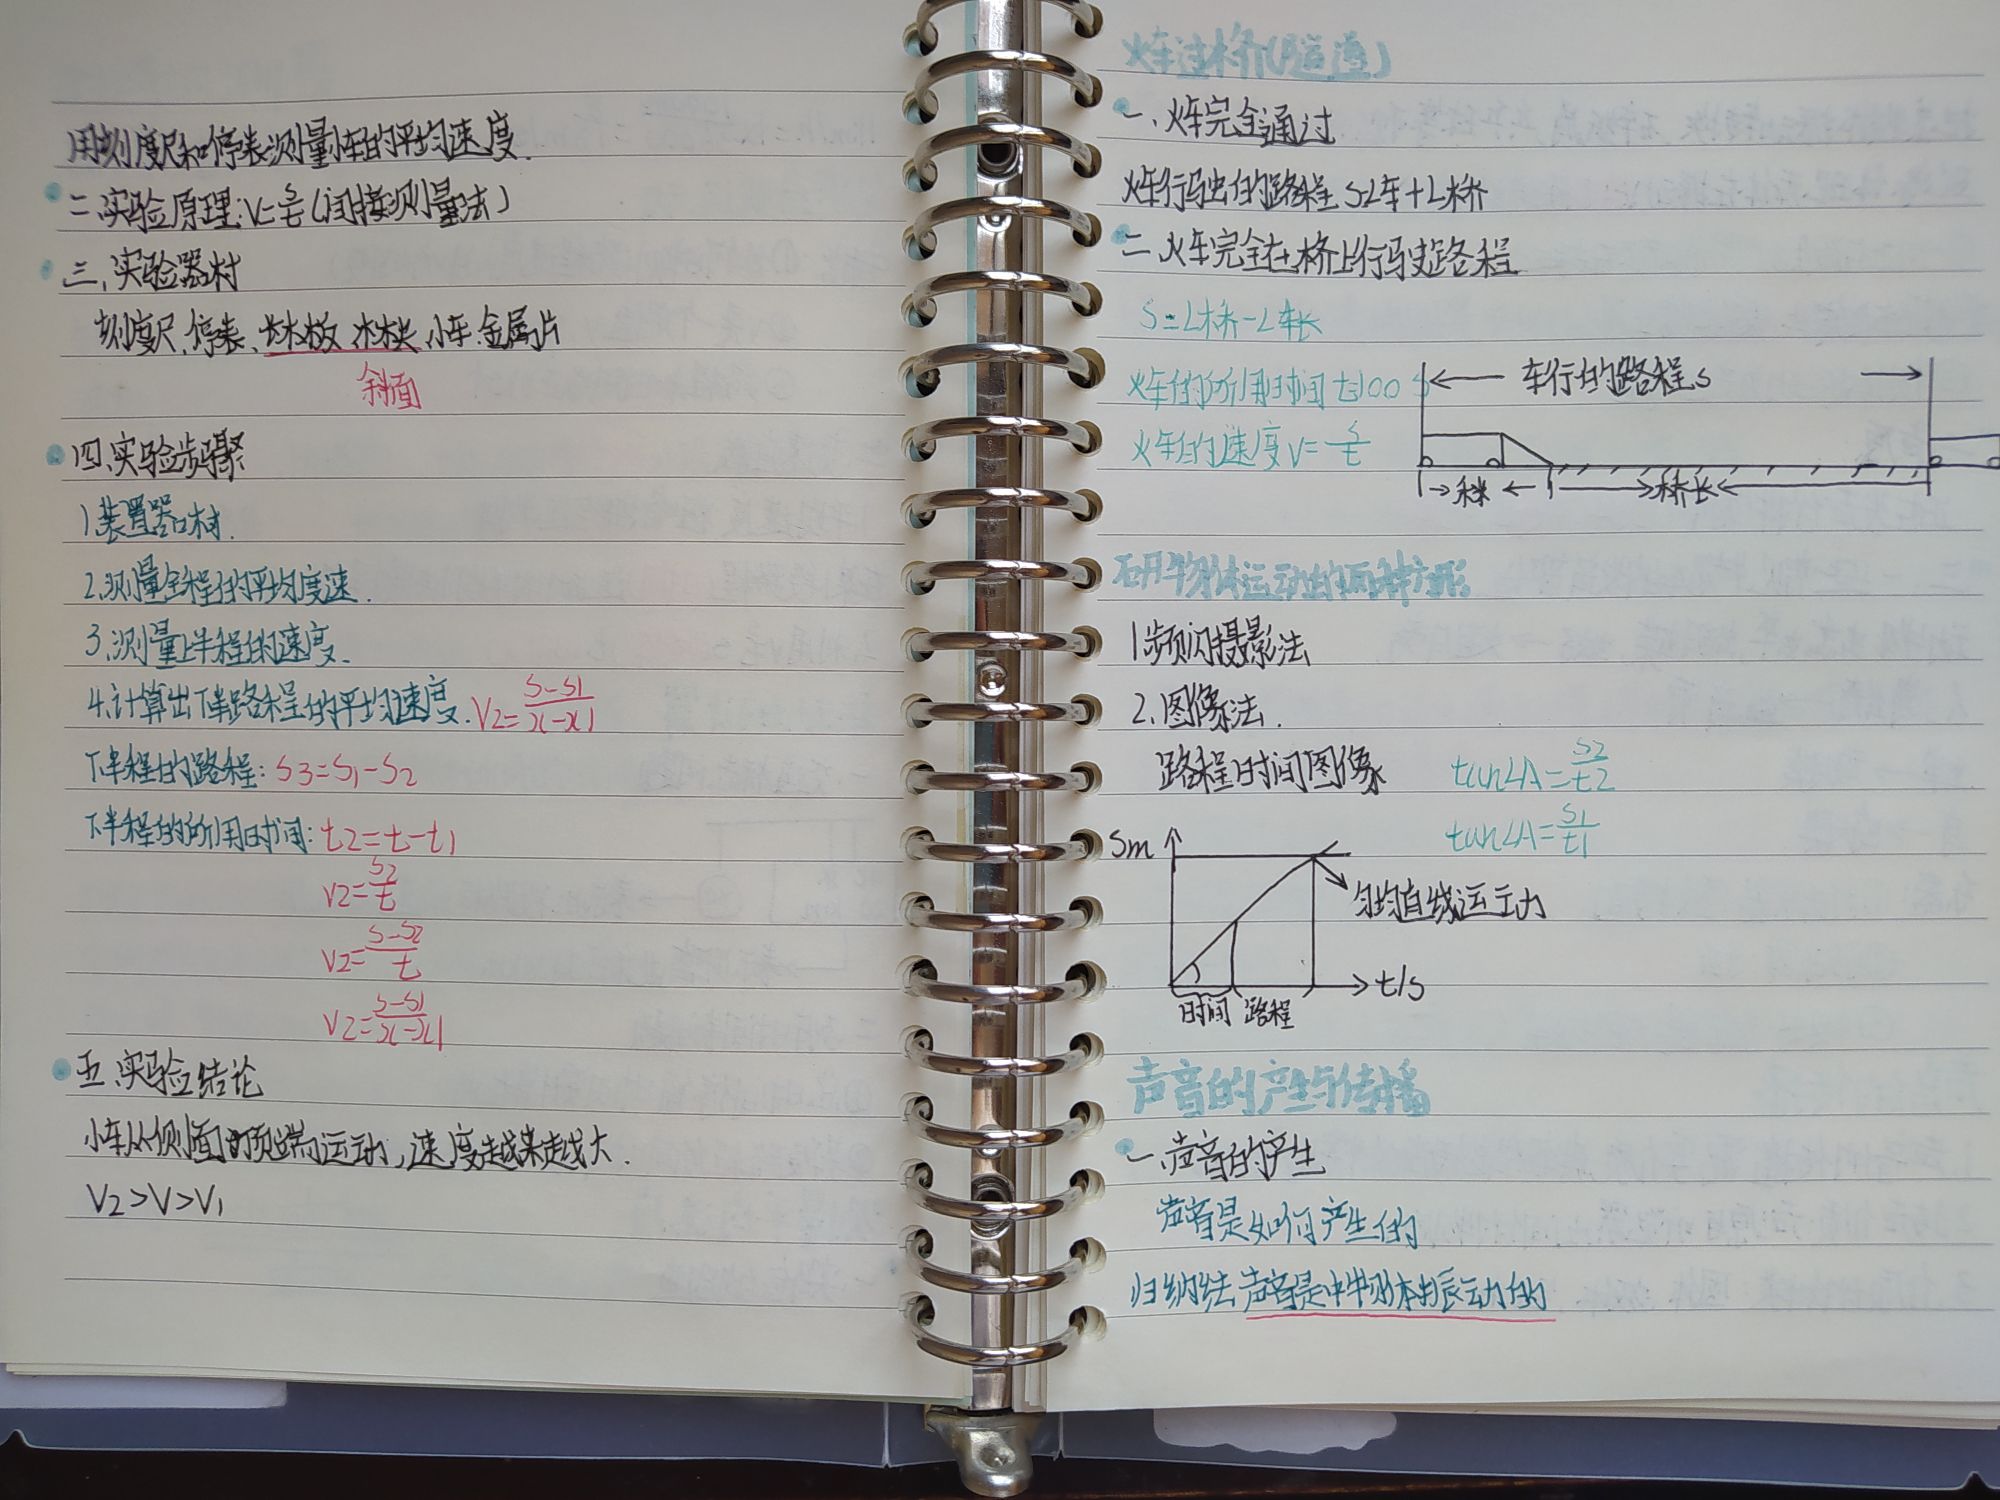 用刻度尺和停表测量小车的平均速度.
二.实验原理:V=s/t(间接测量法)
三.实验器材
刻度尺.停表、长木板.木块.小车.金属片
斜面
四.实验步骤
1装置器材.
2.测量全程的平均度速.
3.测量上半程的速度.
4.计算出下半路程的平均速度. V2=S-S1/x-x1
下半程的路程:S3=S1-S2
下半程的所用时间:t2=t-t1
V2=S2/t
V2=S-S2/t
V2=S-S1/x-x1
五.实验结论
小车从侧面的顶端运动,速度越来越大.
V2>V>V1
火车过桥(隧道)
一.火车完全通过
火车行驶出的路程 S=L车+L桥
二.火车完全在桥上行驶路程
S=L桥-L车长
火车的所用时间t=100 s
火车的速度V=s/t
车行的路程s
车长
桥长
研牛物体运动的两种方形
1频闪摄影法
2.图像法.
路程时间图像
tan∠A=S2/t2
tan∠A=S1/t1
Sm
匀均直线运动
t/s
时间 路程
声音的产生与传播
一.声音的产生
声音是如何产生的
归纳结 声音是由物体振动的